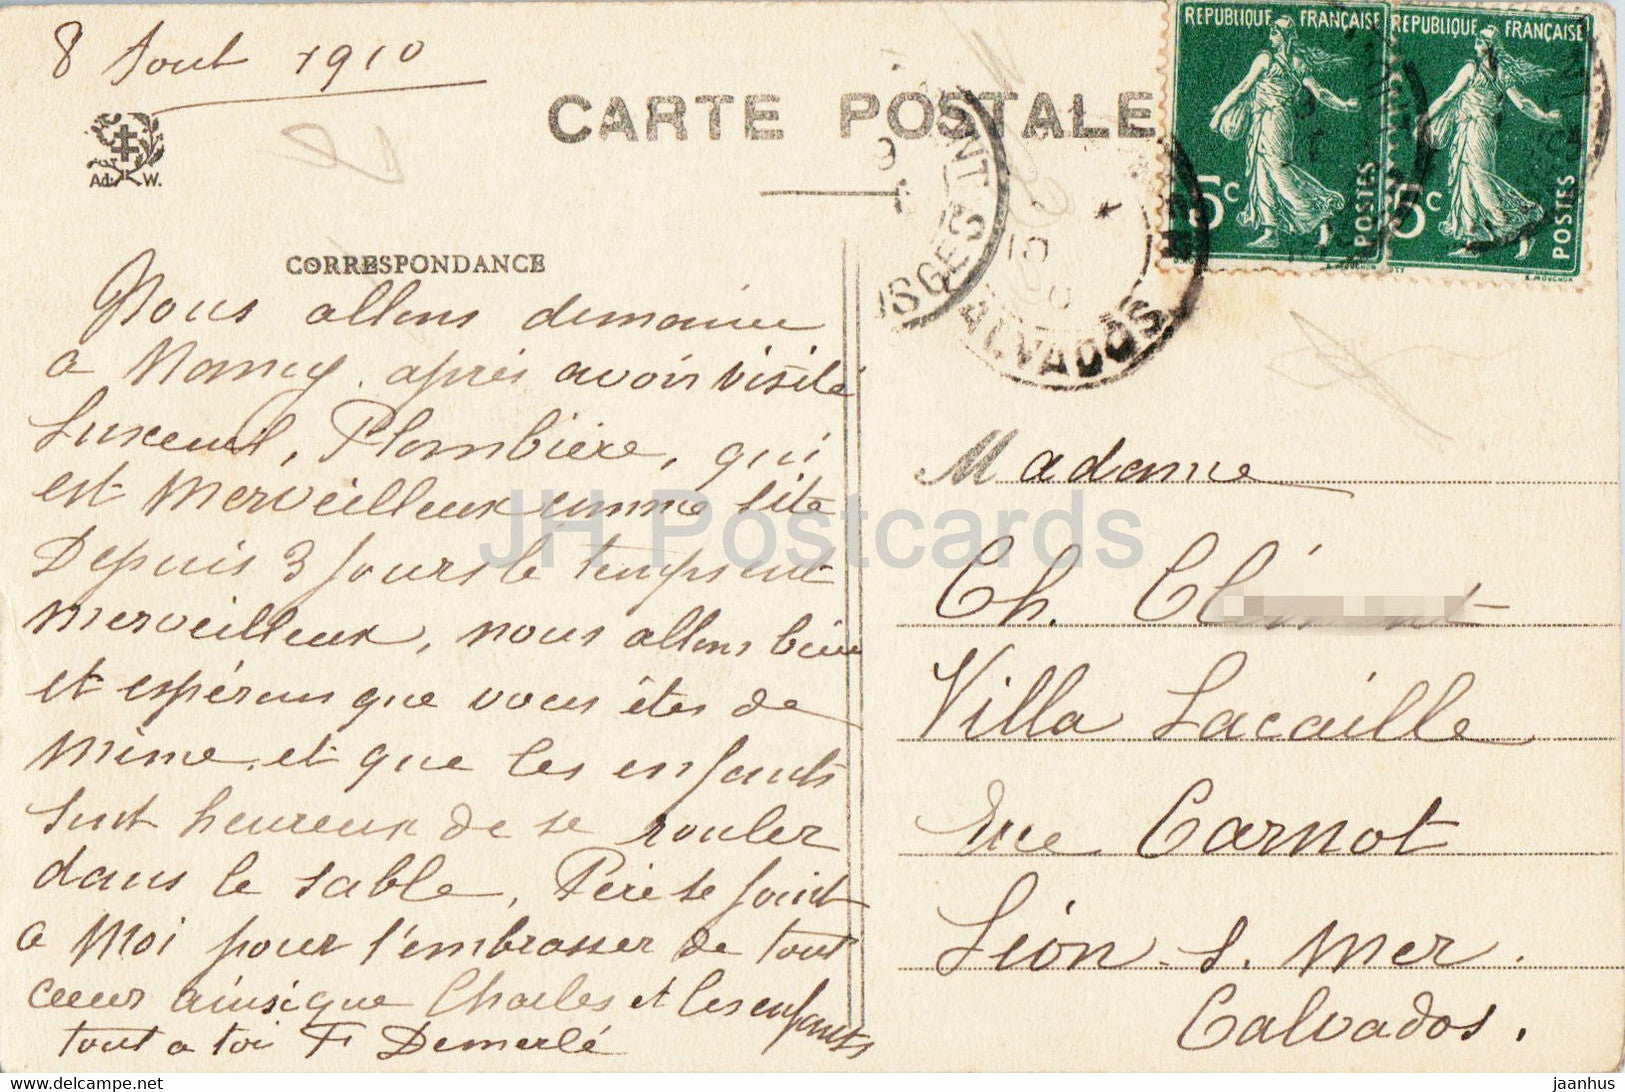 8 Aout 1910
CARTE POSTALE
REPUBLIQUE FRANÇAISE
5c
POSTES
REPUBLIQUE FRANÇAISE
5c
POSTES
E. MOUCHON
Ad. W.
VOSGES
CALVADOS
CORRESPONDANCE
Nous allons demain
a Nancy. après avoir visité
Luxeuil, Plombière, qui
est merveilleux comme site
Depuis 3 jours le temps est
merveilleux, nous allons bien
et espérons que vous êtes de
même. et que les enfants
sont heureux de se rouler
dans le sable, Père se joint
a moi pour t'embrasser de tout
cœur ainsi que Charles et les enfants
tout a toi F. Demerlé
Madame
Ch.
Villa Lacaille
Rue Carnot
Lion. s. Mer.
Calvados.
JH Postcards
The Delcampe Website
jaanhus